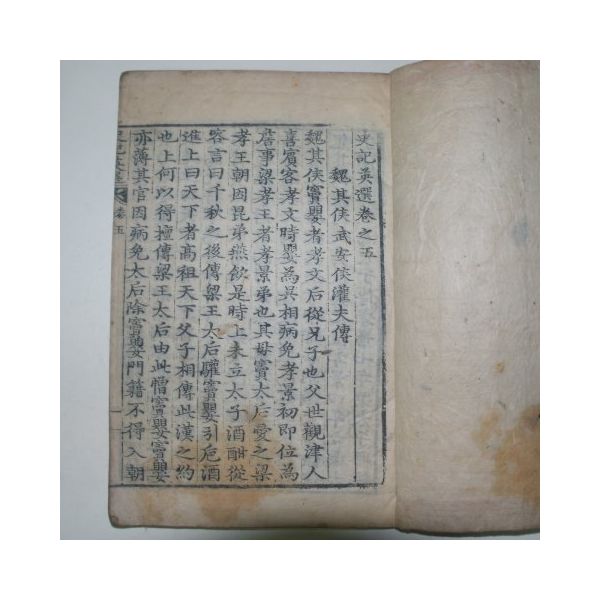 史記英選卷之五
魏其侯武安侯灌夫傳
魏其侯竇嬰者孝文后從兄子也父世觀津人
喜賓客孝文時嬰為吳相病免孝景初即位為
詹事梁孝王者孝景弟也其母竇太后愛之梁
孝王朝因昆弟燕飲是時上未立太子酒酣從
容言曰千秋之後傳梁王太后驩竇嬰引巵酒
進上曰天下者高祖天下父子相傳此漢之約
也上何以得擅傳梁王太后由此憎竇嬰竇嬰
亦薄其官因病免太后除竇嬰門籍不得入朝
卷五
一